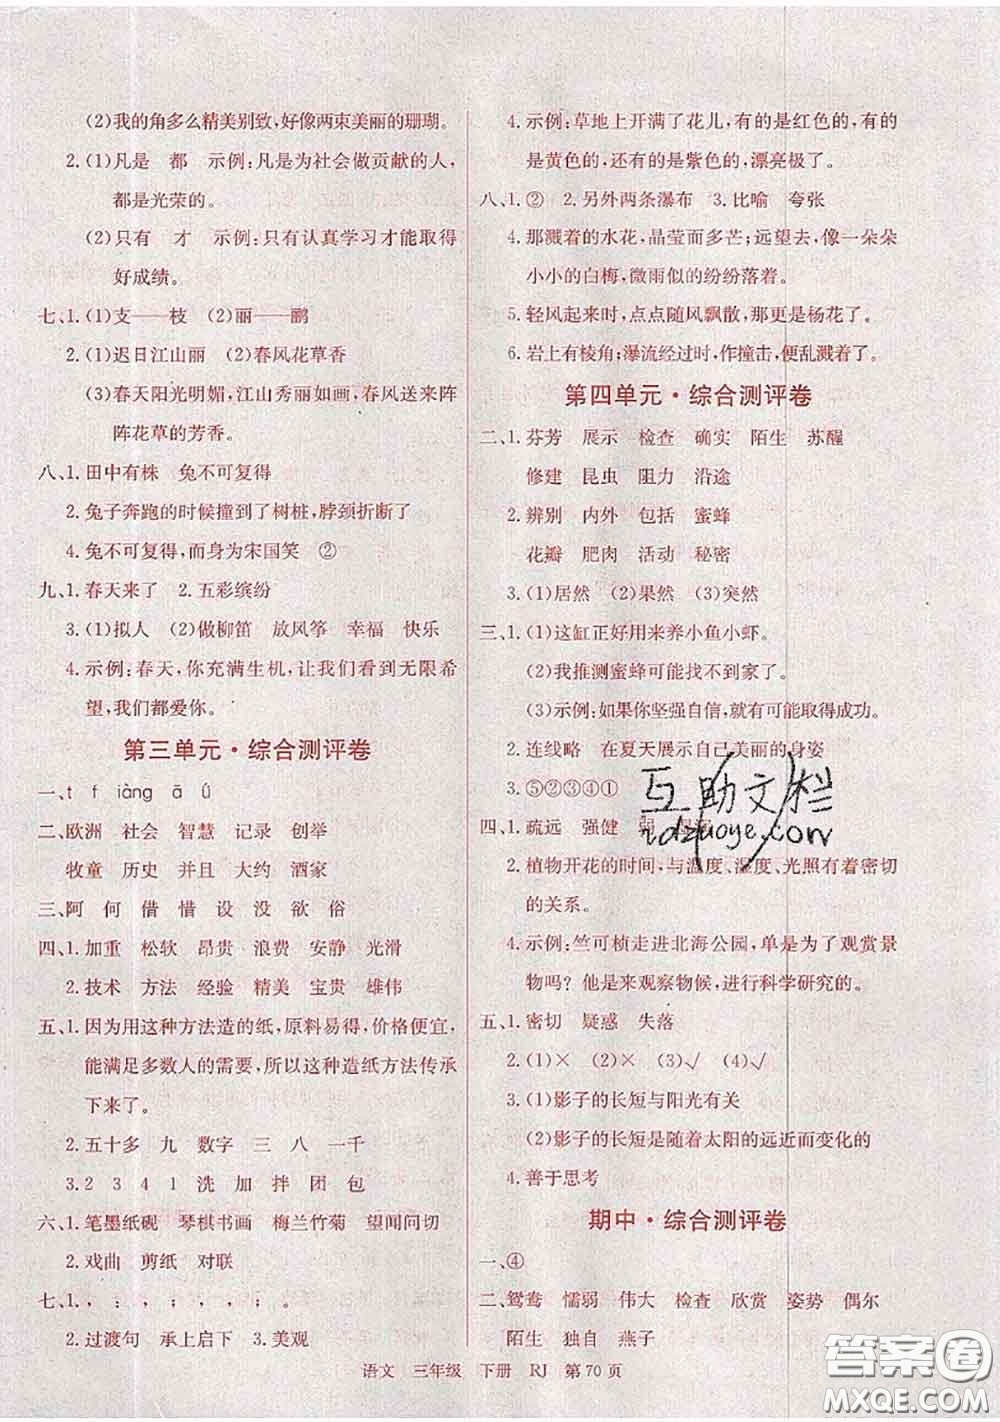 (2)我的角多么精美别致,好像两束美丽的珊瑚。
2. (1)凡是 都 示例:凡是为社会做贡献的人,
都是光荣的。
(2)只有 才 示例:只有认真学习才能取得
好成绩。
七、1. (1)支——枝 (2)丽——鹂
2. (1)迟日江山丽 (2)春风花草香
(3)春天阳光明媚,江山秀丽如画,春风送来阵
阵花草的芳香。
八、1. 田中有株 兔不可复得
2. 兔子奔跑的时候撞到了树桩,脖颈折断了
4. 兔不可复得,而身为宋国笑 ②
九、1. 春天来了 2. 五彩缤纷
3. (1)拟人 (2)做柳笛 放风筝 幸福 快乐
4. 示例:春天,你充满生机,让我们看到无限希
望,我们都爱你。
第三单元·综合测评卷
一、t f iàng ā ǔ
二、欧洲 社会 智慧 记录 创举
牧童 历史 并且 大约 酒家
三、阿 何 借 惜 设 没 欲 俗
四、1. 加重 松软 昂贵 浪费 安静 光滑
2. 技术 方法 经验 精美 宝贵 雄伟
五、1. 因为用这种方法造的纸,原料易得,价格便宜,
能满足多数人的需要,所以这种造纸方法传承
下来了。
2. 五十多 九 数字 三 八 一千
3. 2 3 4 1 洗 加 拌 团 包
六、1. 笔墨纸砚 琴棋书画 梅兰竹菊 望闻问切
2. 戏曲 剪纸 对联
七、1. , : , ; , , ; 。
2. 过渡句 承上启下 3. 美观
4. 示例:草地上开满了花儿,有的是红色的,有的
是黄色的,还有的是紫色的,漂亮极了。
八、1. ② 2. 另外两条瀑布 3. 比喻 夸张
4. 那溅着的水花,晶莹而多芒;远望去,像一朵朵
小小的白梅,微雨似的纷纷落着。
5. 轻风起来时,点点随风飘散,那更是杨花了。
6. 岩上有棱角;瀑流经过时,作撞击,便乱溅着了。
第四单元·综合测评卷
二、1. 芬芳 展示 检查 确实 陌生 苏醒
修建 昆虫 阻力 沿途
2. 辨别 内外 包括 蜜蜂
花瓣 肥肉 活动 秘密
3. (1)居然 (2)果然 (3)突然
三、1. (1)这缸正好用来养小鱼小虾。
(2)我推测蜜蜂可能找不到家了。
(3)示例:如果你坚强自信,就有可能取得成功。
2. 连线略 在夏天展示自己美丽的身姿
3. ⑤②③④①
四、1. 疏远 强健 弱
2. 植物开花的时间,与温度、湿度、光照有着密切
的关系。
4. 示例:竺可桢走进北海公园,单是为了观赏景
物吗? 他是来观察物候,进行科学研究的。
五、1. 密切 疑惑 失落
2. (1)× (2)× (3)√ (4)√
3. (1)影子的长短与阳光有关
(2)影子的长短是随着太阳的远近而变化的
4. 善于思考
期中·综合测评卷
一、④
二、鸳鸯 懦弱 伟大 检查 欣赏 姿势 偶尔
陌生 独自 燕子
语文 三年级 下册 RJ 第70页
互助文档
答案圈
MXQE.COM